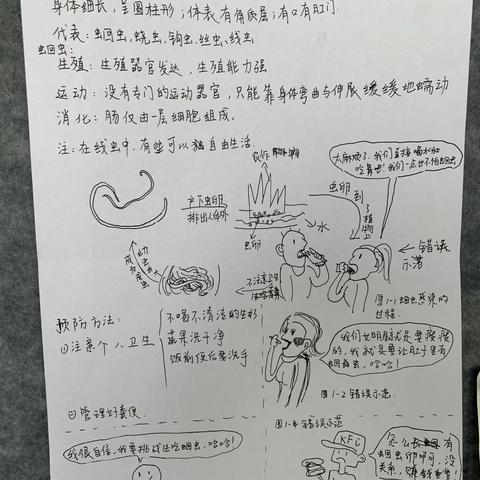 身体细长，呈圆柱形；体表有角质层；有口有肛门.
代表：蛔虫，蛲虫，钩虫，丝虫，线虫
蛔虫：
生殖：生殖器官发达，生殖能力强
运动：没有专门的运动器官，只能靠身体弯曲与伸展缓缓地蠕动
消化：肠仅由一层细胞组成。
注：在线虫中，有些可以独自由生活。
农作
产下虫卵
排出体外
水
虫卵
虫卵
到
了
植物
上
太麻烦了，我们直接喝水和
吃青吧！我们一点也不怕蛔虫
← 错误
示范
幼虫
成虫
不注意卫生
图1-1 蛔虫感染的
过程
预防方法：
①注意个人卫生
不喝不清洁的生水
蔬果洗干净
饭前便后要洗手
②管理好粪便
我们女明星就是要瘦
的，我就是要让肚子里有
蛔虫，哈哈！
图1-2 错误示范.
图1-4 错误示范
我很自信，我要挑战生吃蛔虫，哈哈！
KFC
怎么有
蛔虫卵啊，没
关系，赚钱重要！